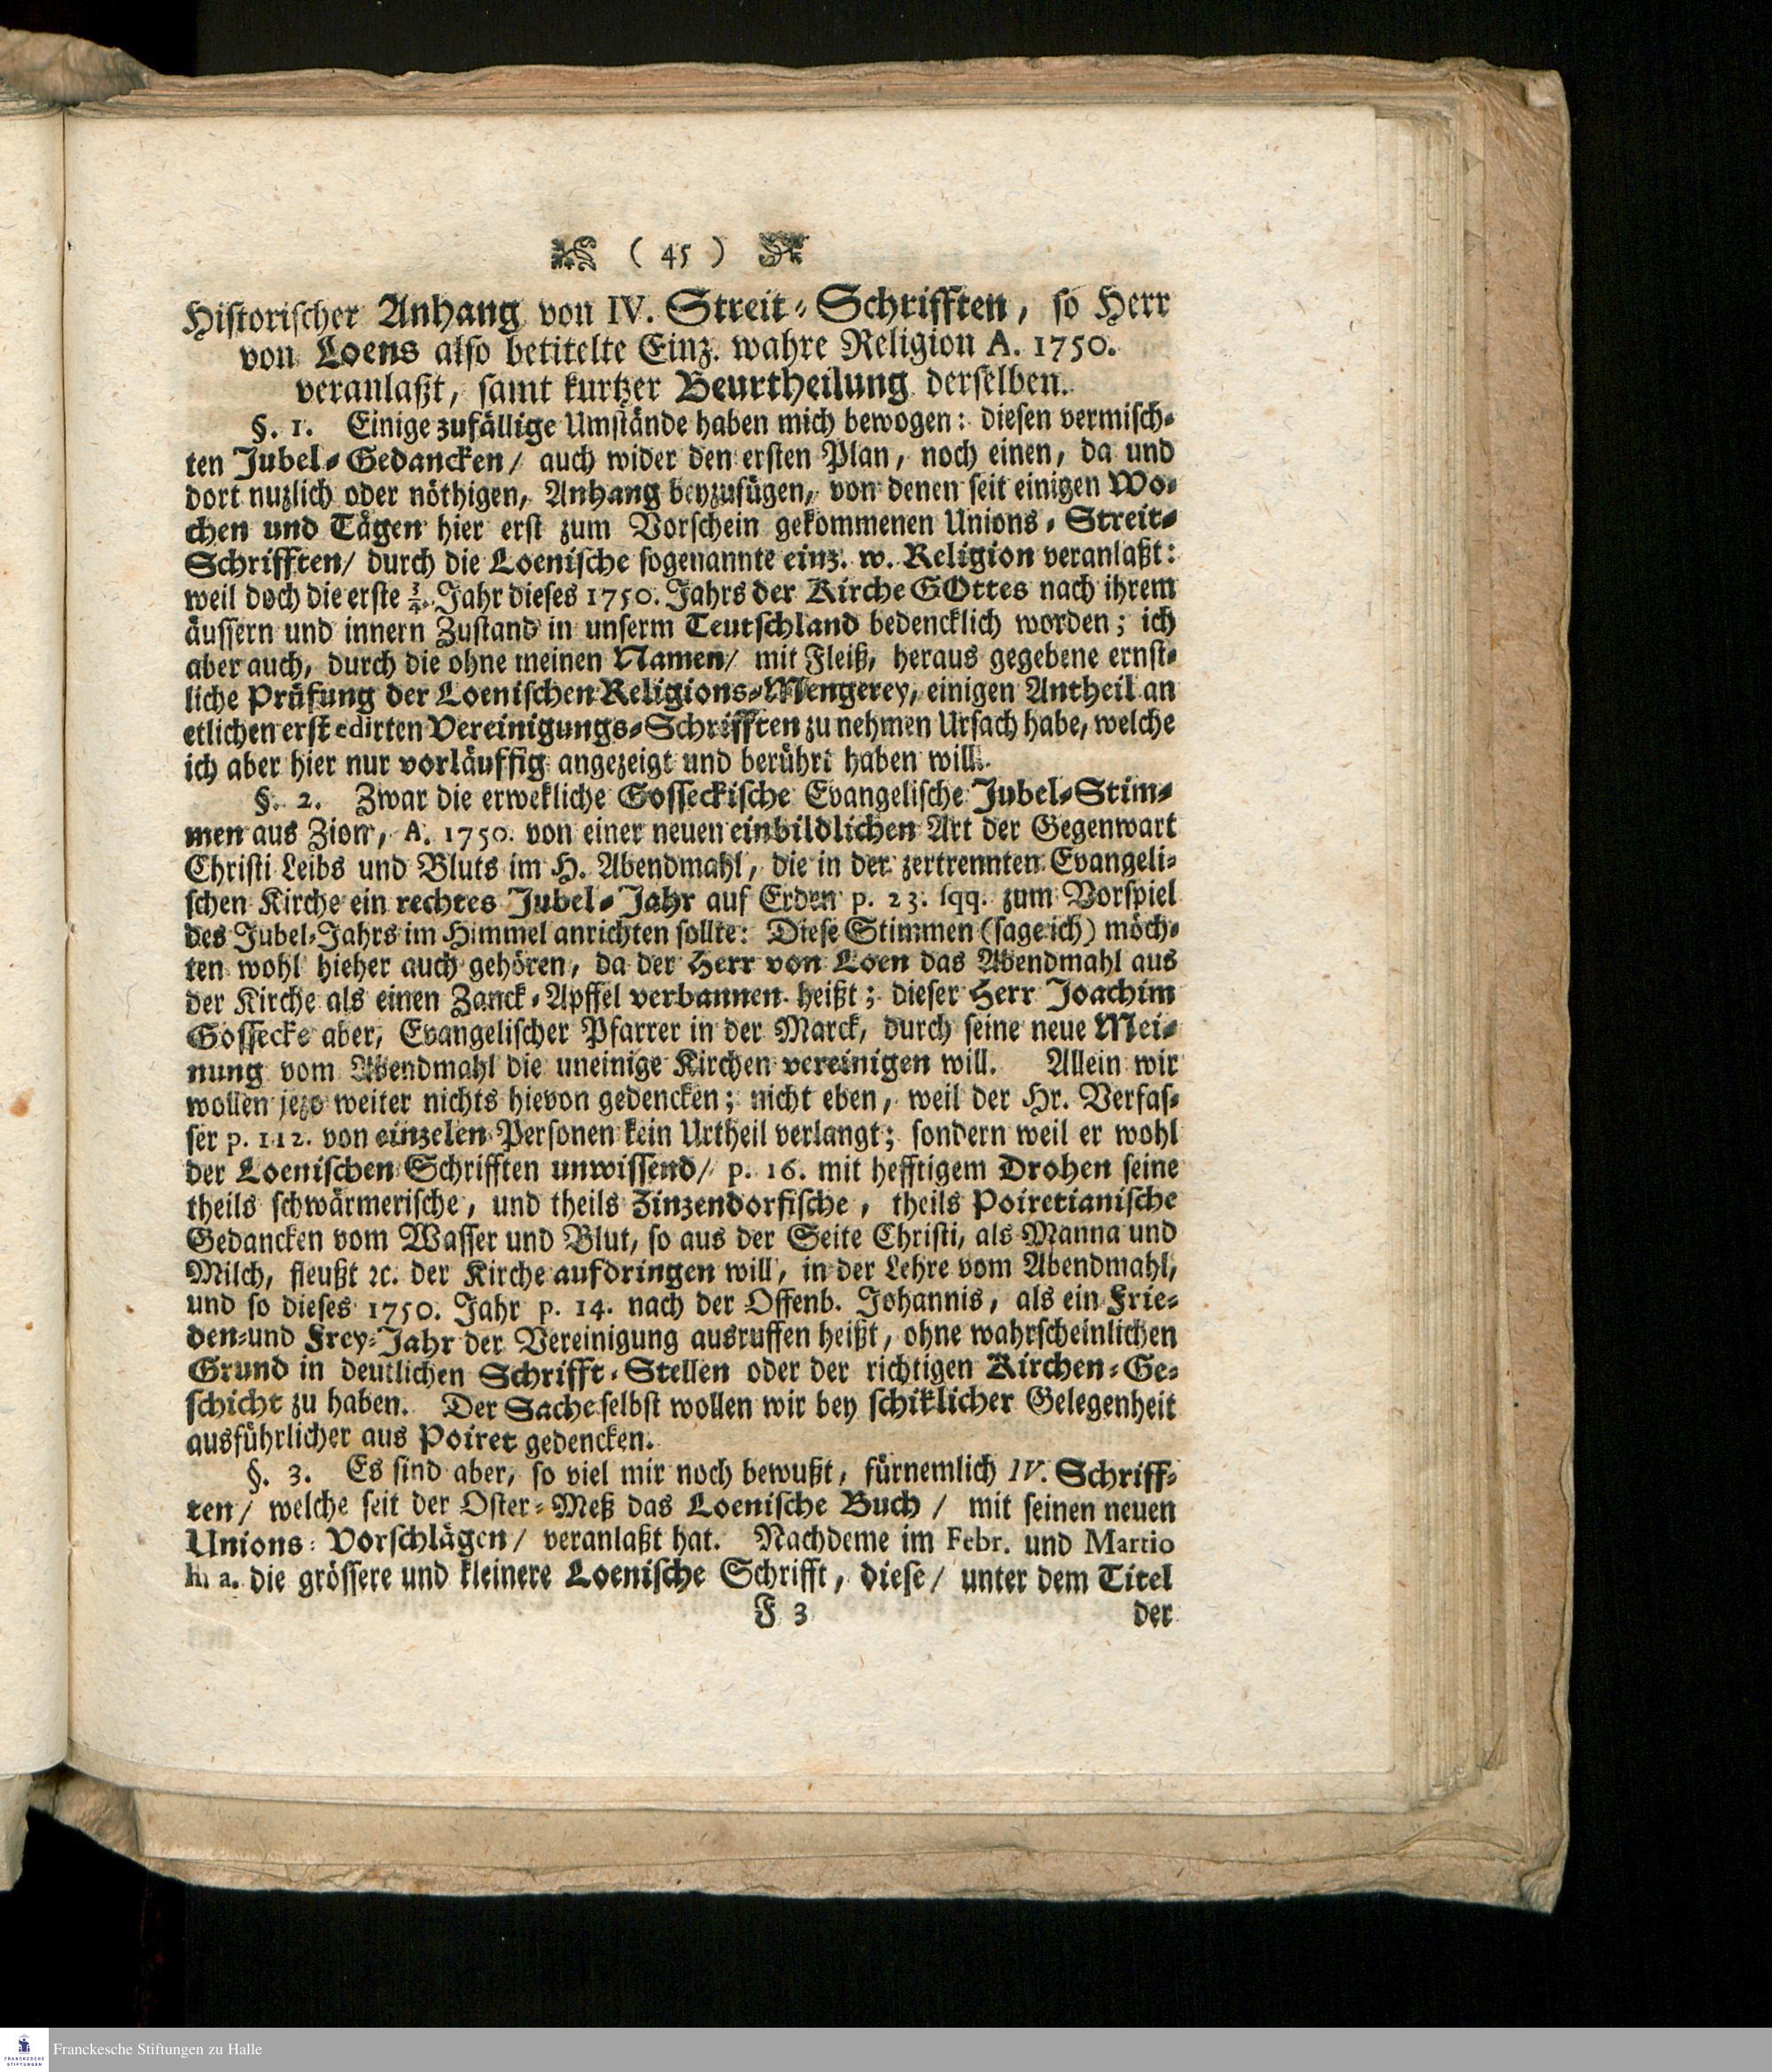 ( 45 )
Historischer Anhang von IV. Streit-Schrifften, so Herr
von Loens also betitelte Einz. wahre Religion A. 1750.
veranlaßt, samt kurtzer Beurtheilung derselben.
§. 1. Einige zufällige Umstände haben mich bewogen: diesen vermisch-
ten Jubel-Gedancken/ auch wider den ersten Plan, noch einen, da und
dort nuzlich oder nöthigen, Anhang beyzufügen, von denen seit einigen Wo-
chen und Tägen hier erst zum Vorschein gekommenen Unions-Streit-
Schrifften/ durch die Loenische sogenannte einz. w. Religion veranlaßt:
weil doch die erste ¾. Jahr dieses 1750. Jahrs der Kirche GOttes nach ihrem
äussern und innern Zustand in unserm Teutschland bedencklich worden; ich
aber auch, durch die ohne meinen Namen/ mit Fleiß, heraus gegebene ernst-
liche Prüfung der Loenischen Religions-Mengerey, einigen Antheil an
etlichen erst edirten Vereinigungs-Schrifften zu nehmen Ursach habe, welche
ich aber hier nur vorläuffig angezeigt und berührt haben will.
§. 2. Zwar die erwekliche Gosseckische Evangelische Jubel-Stim-
men aus Zion, A. 1750. von einer neuen einbildlichen Art der Gegenwart
Christi Leibs und Bluts im H. Abendmahl, die in der zertrennten Evangeli-
schen Kirche ein rechtes Jubel-Jahr auf Erden p. 23. sqq. zum Vorspiel
des Jubel-Jahrs im Himmel anrichten sollte: Diese Stimmen (sage ich) möch-
ten wohl hieher auch gehören, da der Herr von Loen das Abendmahl aus
der Kirche als einen Zanck-Apffel verbannen heißt; dieser Herr Joachim
Gossecke aber, Evangelischer Pfarrer in der Marck, durch seine neue Mei-
nung vom Abendmahl die uneinige Kirchen vereinigen will. Allein wir
wollen jezo weiter nichts hievon gedencken; nicht eben, weil der Hr. Verfas-
ser p. 112. von einzelen Personen kein Urtheil verlangt; sondern weil er wohl
der Loenischen Schrifften unwissend/ p. 16. mit hefftigem Drohen seine
theils schwärmerische, und theils Zinzendorfische, theils Poiretianische
Gedancken vom Wasser und Blut, so aus der Seite Christi, als Manna und
Milch, fleußt ꝛc. der Kirche aufdringen will, in der Lehre vom Abendmahl,
und so dieses 1750. Jahr p. 14. nach der Offenb. Johannis, als ein Frie-
den-und Frey-Jahr der Vereinigung ausruffen heißt, ohne wahrscheinlichen
Grund in deutlichen Schrifft-Stellen oder der richtigen Kirchen-Ge-
schicht zu haben. Der Sache selbst wollen wir bey schiklicher Gelegenheit
ausführlicher aus Poiret gedencken.
§. 3. Es sind aber, so viel mir noch bewußt, fürnemlich IV. Schriff-
ten/ welche seit der Oster-Meß das Loenische Buch / mit seinen neuen
Unions-Vorschlägen/ veranlaßt hat. Nachdeme im Febr. und Martio
h. a. die grössere und kleinere Loenische Schrifft, diese/ unter dem Titel
F 3 der
Franckesche Stiftungen zu Halle
FRANCKESCHE
STIFTUNGEN